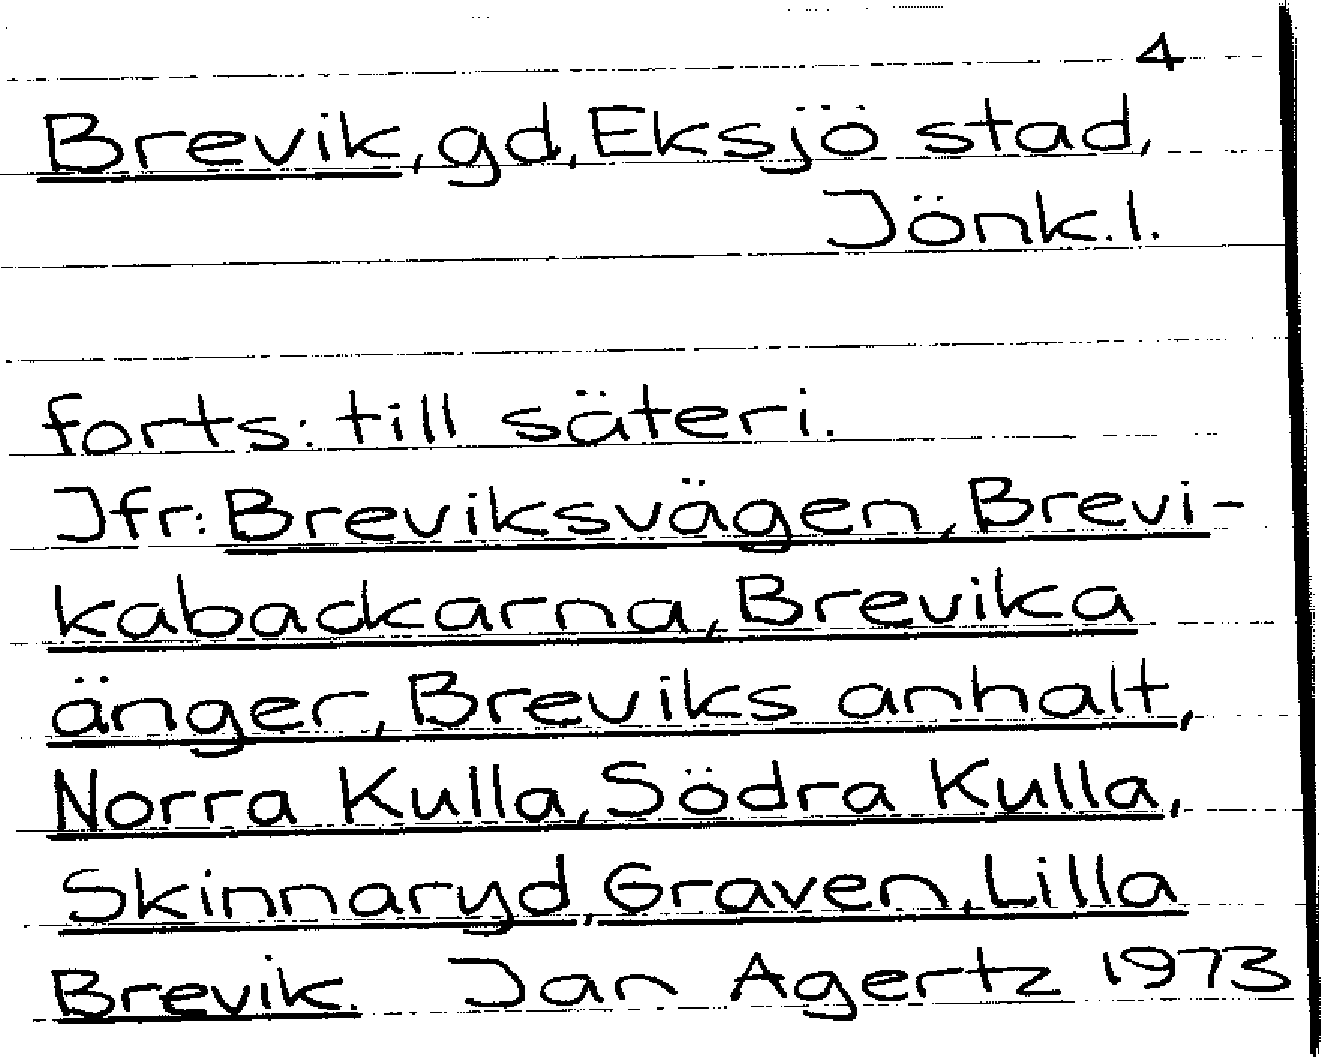 4
Brevik, gd, Eksjö stad,
Jönk. l.
forts: till säteri.
Jfr: Breviksvägen, Brevi-
kabackarna, Brevika
änger, Breviks anhalt,
Norra Kulla, Södra Kulla,
Skinnaryd, Graven, Lilla
Brevik. Jan Agertz 1973